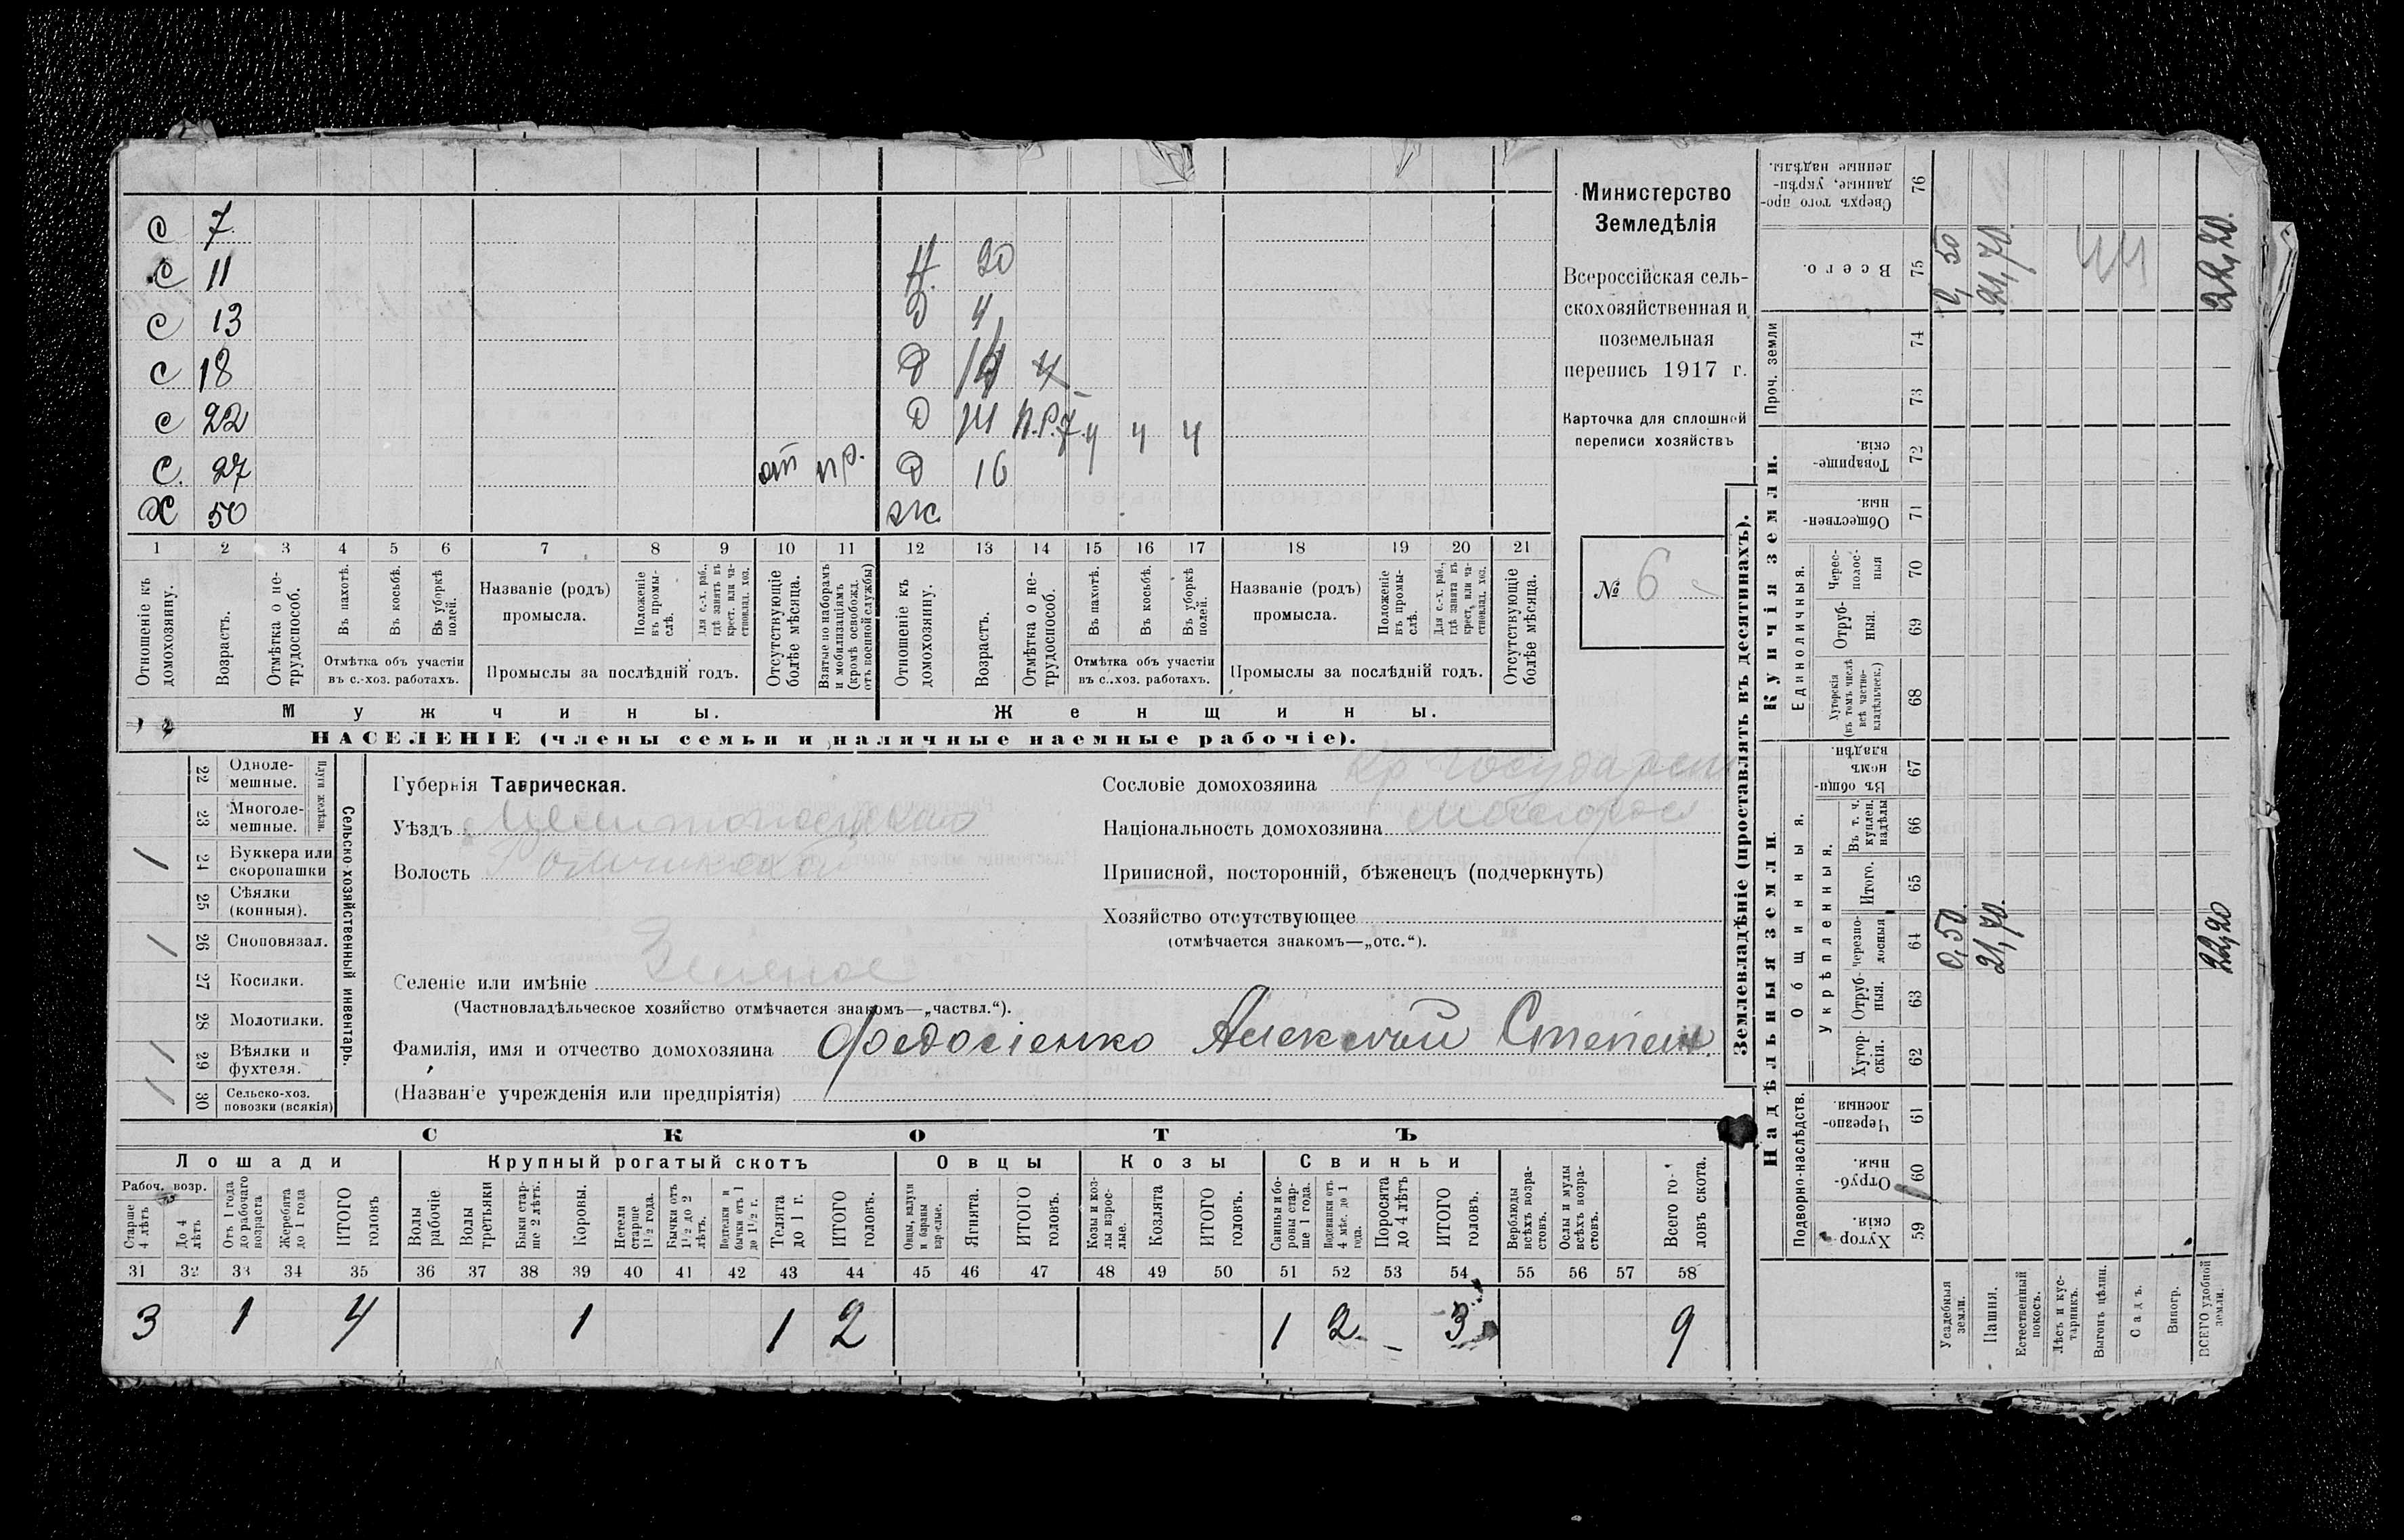 С 7
С 11
С 13
С 18
С 22
С. 27 от пр.
Х 50
Н. 20
Д 4
Д
Д 14 Н.Р. 7. 4 4 4
Д 16
Ж.
1 2 3 4 5 6 7 8 9 10 11 12 13 14 15 16 17 18 19 20 21
Отношеніе къ домохозяину.
Возрастъ.
Отмѣтка о нетрудоспособ.
Въ пахотѣ.
Въ косьбѣ.
Въ уборкѣ полей.
Отмѣтка объ участіи въ с.-хоз. работахъ.
Названіе (родъ) промысла.
Положеніе въ промыслѣ.
Для с.-х. раб., гдѣ занятъ въ крест. или частновлад. хоз.
Промыслы за послѣдній годъ.
Отсутствующіе болѣе мѣсяца.
Взятые по наборамъ и мобилизаціямъ (кромѣ освобожд. отъ военной службы)
Отношеніе къ домохозяину.
Возрастъ.
Отмѣтка о нетрудоспособ.
Въ пахотѣ.
Въ косьбѣ.
Въ уборкѣ полей.
Отмѣтка объ участіи въ с..хоз. работахъ.
Названіе (родъ) промысла.
Положеніе въ промыслѣ.
Для с.-х. раб., гдѣ занята въ крест. или частновлад. хоз.
Промыслы за послѣдній годъ.
Отсутствующіе болѣе мѣсяца.
Мужчины.
Женщины.
НАСЕЛЕНІЕ (члены семьи и наличные наемные рабочіе).
Министерство
Земледѣлія
Всероссійская сель-
скохозяйственная и
поземельная
перепись 1917 г.
Карточка для сплошной
переписи хозяйствъ
№ 6
22 Одноле-мешные.
23 Многоле-мешные.
Плуги желѣзн.
24 Буккера или скоропашки 1
25 Сѣялки (конныя).
26 Сноповязал. 1
27 Косилки.
28 Молотилки.
29 Вѣялки и фухтеля. 1
30 Сельско-хоз. повозки (всякія) 1
Сельско-хозяйственный инвентарь.
Губернія Таврическая.
Уѣздъ Мелитопольскій
Волость
Селеніе или имѣніе Зеленое
(Частновладѣльческое хозяйство отмѣчается знакомъ—„частвл.“).
Фамилія, имя и отчество домохозяина Федосіенко Алексѣй Степан.
(Названіе учрежденія или предпріятія)
Сословіе домохозяина Кр государст
Національность домохозяина малорос
Приписной, посторонній, бѣженецъ (подчеркнуть)
Хозяйство отсутствующее
(отмѣчается знакомъ—„отс.“).
СКОТЪ
Лошади
Рабоч. возр.
Старше 4 лѣтъ
До 4 лѣтъ
Отъ 1 года до рабочаго возраста
Жеребята до 1 года
ИТОГО головъ
Крупный рогатый скотъ
Волы рабочіе
Волы третьяки
Быки старше 2 лѣтъ.
Коровы.
Нетели старше 1½ года.
Бычки отъ 1½ до 2 лѣтъ.
Подтелки и бычки отъ 1 до 1½ г.
Телята до 1 г.
ИТОГО головъ.
Овцы
Овцы, валухи и бараны взрослые.
Ягнята.
ИТОГО головъ.
Козы
Козы и козлы взрослые.
Козлята
ИТОГО головъ.
Свиньи
Свиньи и боровы старше 1 года.
Подсвинки отъ 4 мѣс. до 1 года.
Поросята до 4 лѣтъ
ИТОГО головъ.
Верблюды всѣхъ возрастовъ.
Ослы и мулы всѣхъ возрастовъ.
Всего головъ скота.
31 32 33 34 35 36 37 38 39 40 41 42 43 44 45 46 47 48 49 50 51 52 53 54 55 56 57 58
3 1 4 1 1 2 1 2 - 3 9
Землевладѣніе (проставлять въ десятинахъ).
Купчія земли.
Сверхъ того проданные, укрѣпленные надѣлы. 76
Всего. 75
Проч. земли
74
73
Товарищескія. 72
Общественныя. 71
Единоличныя.
Чересполосныя 70
Отрубныя. 69
Хуторскія (въ томъ числѣ всѣ частновладѣльческ.) 68
Надѣльныя земли.
Общинныя.
Въ общинномъ владѣн. 67
Укрѣпленныя.
Въ т. ч. куплен. надѣлы 66
Итого. 65
Черезполосныя 64
Отрубныя. 63
Хуторскія. 62
Подворно-наслѣдств.
Черезполосныя. 61
Отрубныя. 60
Хуторскія. 59
Усадебныя земли. 0,50. 0, 50
Пашня. 21,70. 21,70
Естественный покосъ.
Лѣсъ и кустарникъ.
Выгонъ цѣлин.
Садъ.
Виногр.
ВСЕГО удобной земли. 22,20 22,20.
44